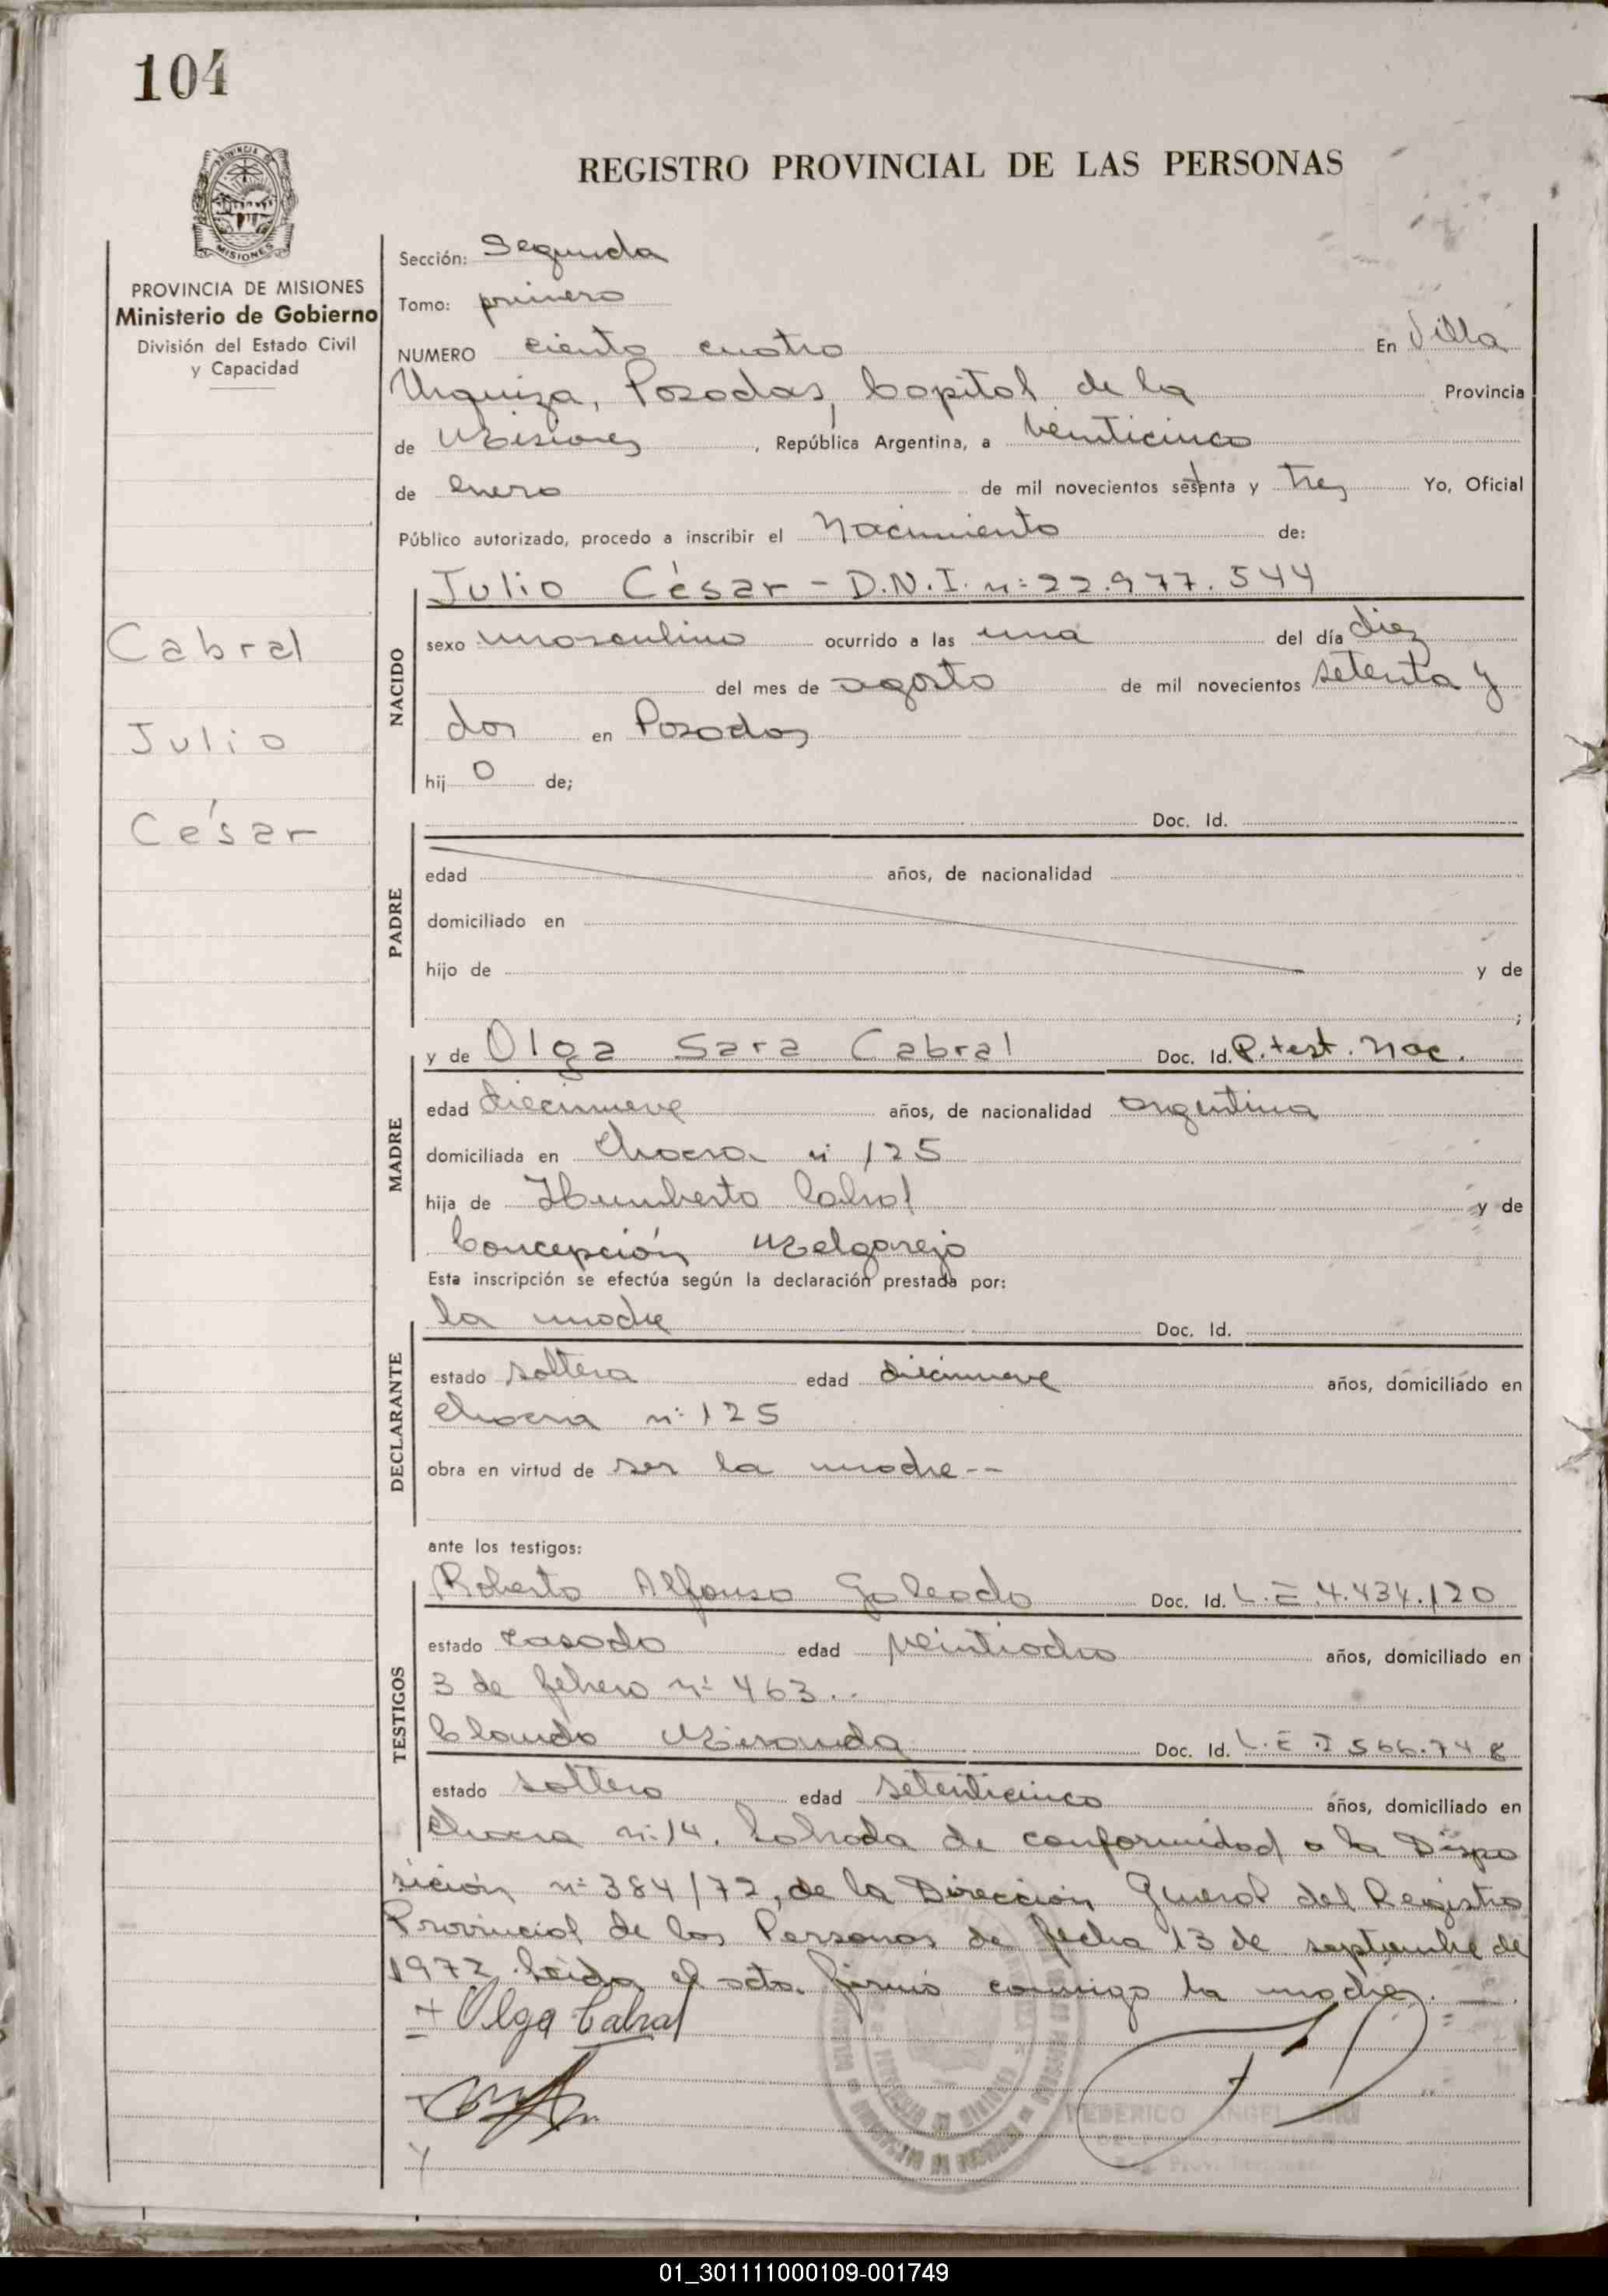 104
REGISTRO PROVINCIAL DE LAS PERSONAS
PROVINCIA DE
MISIONES
PROVINCIA DE MISIONES
Ministerio de Gobierno
División del Estado Civil
y Capacidad
Cabral
Julio
César
Sección: Segunda
Tomo: primero
NUMERO ciento cuatro En Villa
Urquiza, Posadas, Capital de la Provincia
de Misiones, República Argentina, a veinticinco
de enero de mil novecientos setenta y tres Yo, Oficial
Público autorizado, procedo a inscribir el Nacimiento de:
Julio César - D.N.I. nº 22.977.544
NACIDO
sexo masculino ocurrido a las una del día diez
del mes de agosto de mil novecientos setenta y
dos en Posadas
hij o de;
Doc. Id.
PADRE
edad años, de nacionalidad
domiciliado en
hijo de y de
;
y de Olga Sara Cabral Doc. Id. P. test. Nac.
MADRE
edad diecinueve años, de nacionalidad argentina
domiciliada en Chacra nº 125
hija de Humberto Cabral y de
Concepción Melgarejo
Esta inscripción se efectúa según la declaración prestada por:
la madre Doc. Id.
DECLARANTE
estado soltera edad diecinueve años, domiciliado en
chacra nº 125
obra en virtud de ser la madre--
ante los testigos:
Roberto Alfonso Galeado Doc. Id. L.E. 4.434.120
TESTIGOS
estado casado edad veintiocho años, domiciliado en
3 de febrero nº 463..
Claudo Miranda Doc. Id. L.E. 566.748
estado soltero edad setenticinco años, domiciliado en
chacra nº 14. Labrada de conformidad a la Dispo
sición nº 384/72, de la Dirección General del Registro
Provincial de las Personas de fecha 13 de septiembre de
1972. Leída el acta. firmó conmigo la madre. —
+ Olga Cabral
FEDERICO ANGEL
01_301111000109-001749